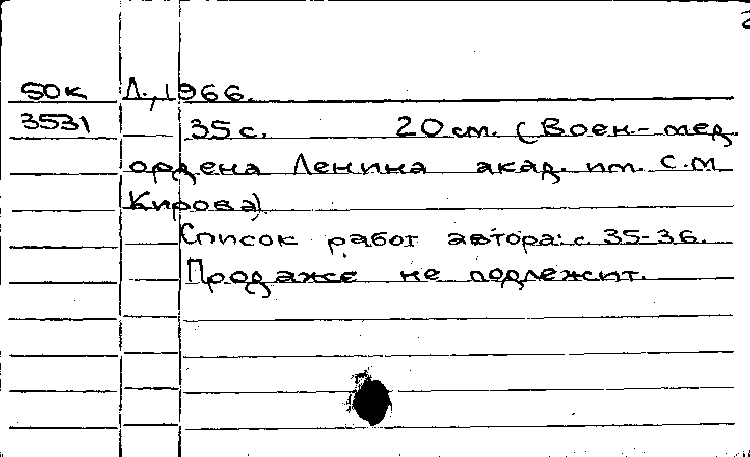 50к Л., 1966.
3531 35 с. 20 см. (Воен.-мед.
ордена Ленина акад. им. С.М
Кирова).
Список работ автора: с. 35-36.
Продаже не подлежит.